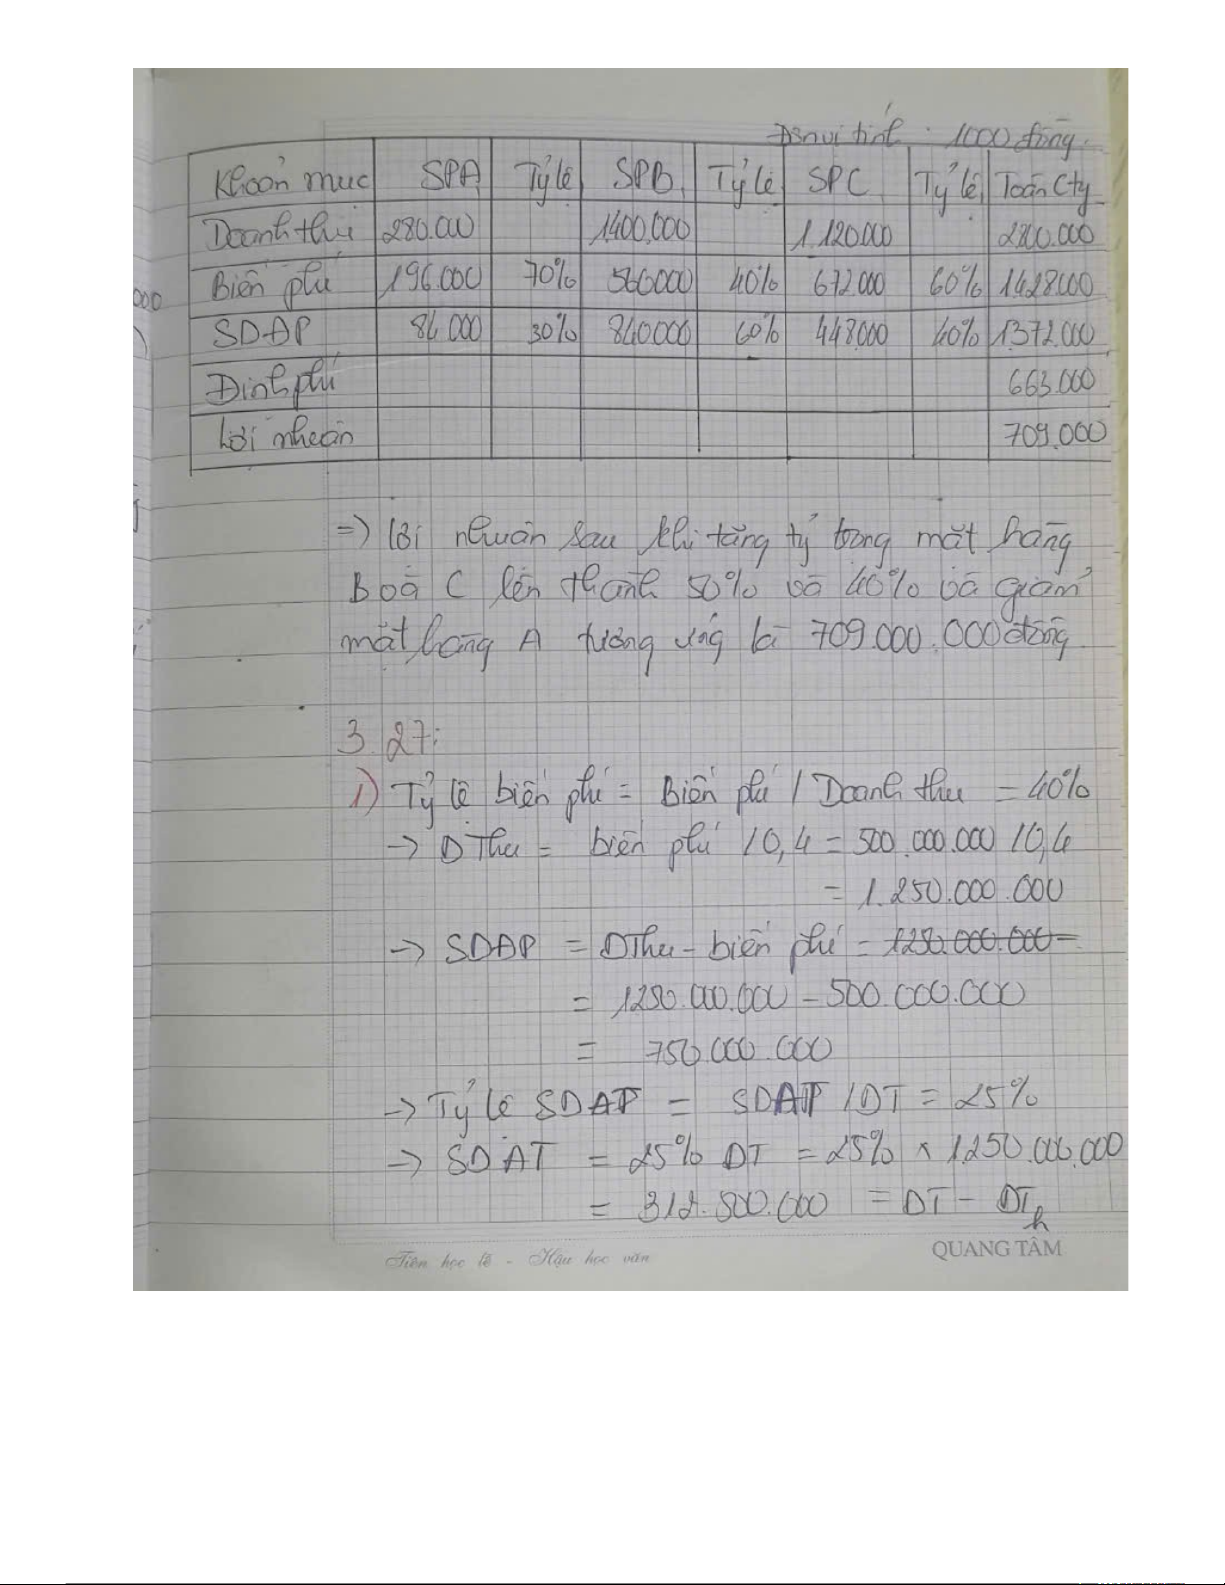 Đơn vị tính : 1000 đồng
Khoản mục SPA Tỷ lệ SPB Tỷ lệ SPC Tỷ lệ Toàn Cty
Doanh thu 280.000 1400.000 1.120.000 2800.000
Biến phí 196.000 70% 560000 40% 672.000 60% 1428.000
SDĐP 84.000 30% 840.000 60% 448.000 40% 1372.000
Định phí 663.000
Lợi nhuận 709.000
=> Lợi nhuận sau khi tăng tỷ trọng mặt hàng
B và C lên thành 50% và 40% và giảm
mặt hàng A tương ứng là 709.000.000 đồng
3.27:
1) Tỷ lệ biến phí = Biến phí / Doanh thu = 40%
-> DThu = biến phí / 0,4 = 500.000.000 / 0,4
= 1.250.000.000
-> SDĐP = DThu - biến phí = 1250.000.000 =
= 1250.000.000 - 500.000.000
= 750.000.000
-> Tỷ lệ SDAT = SDAT / DT = 25%
-> SDAT = 25% DT = 25% x 1.250.000.000
= 312.500.000 = DT - DTh
Tiên học lễ - Hậu học văn
QUANG TÂM